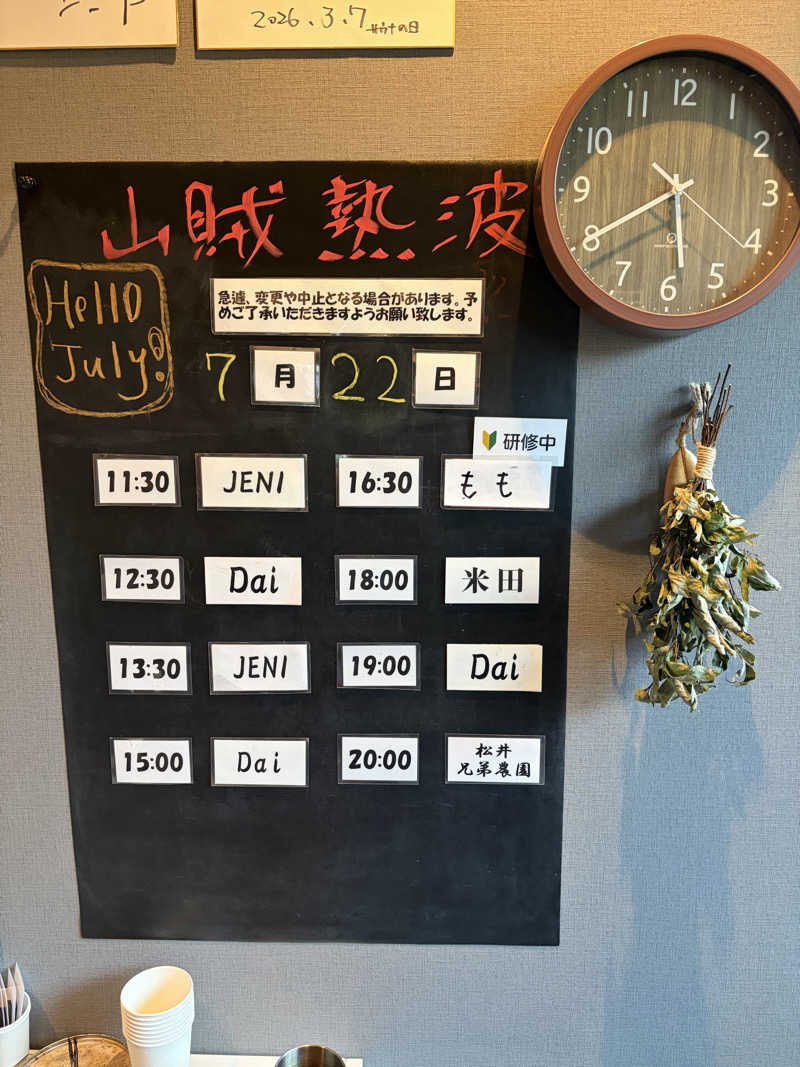 2026.3.7 サウナの日
山賊 熱波
Hello
July!
急遽、変更や中止となる場合があります。予
めご了承いただきますようお願い致します。
7 月 22 日
研修中
11:30 JENI 16:30 もも
12:30 Dai 18:00 米田
13:30 JENI 19:00 Dai
15:00 Dai 20:00 松井
兄弟農園
12
1
2
3
4
5
6
7
8
9
10
11